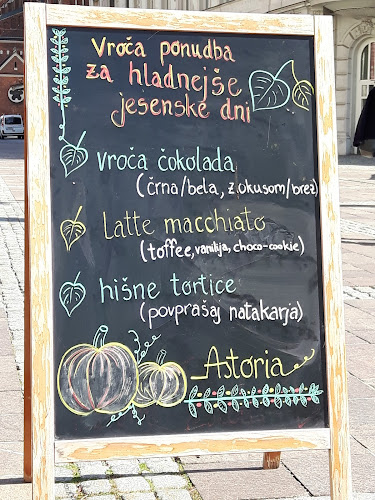 Vroča ponudba
za hladnejše
jesenske dni
vroča čokolada
(črna/bela, z okusom/brez)
Latte macchiato
(toffee, vanilija, choco-cookie)
hišne tortice
(povprašaj natakarja)
Astoria